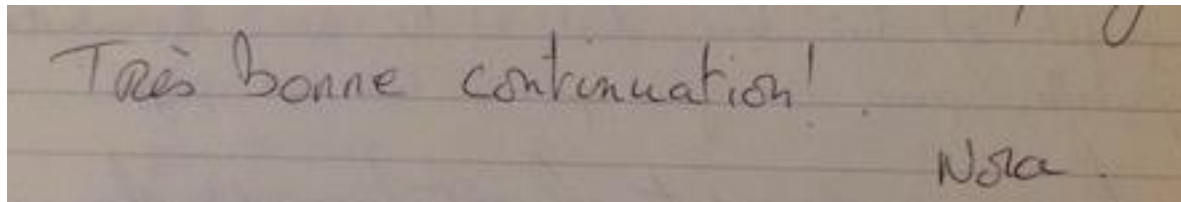 Très bonne continuation!
Nora.